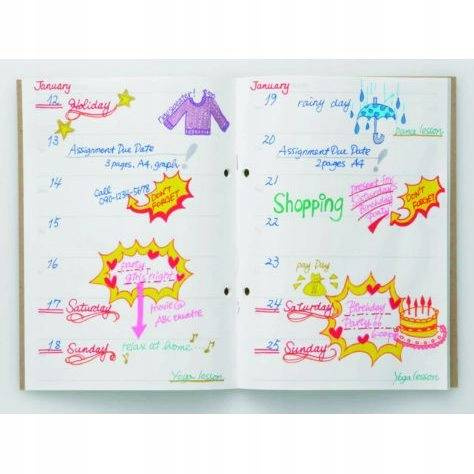 January
12 Holiday
13
Assignment Due Date
3 pages, A4, graph
14 Call
090-1235-5678
DON'T
FORGET
15
16
party
girls' night
17 Saturday
movie@
18 Sunday
relax at home
Yoga lesson
January
19 rainy day
Dance lesson
20
Assignment Due Date
2 pages, A4
21
Shopping
DON'T
FORGET
22
23
pay Day
24 Saturday
Birthday
Party
25 Sunday
Yoga lesson